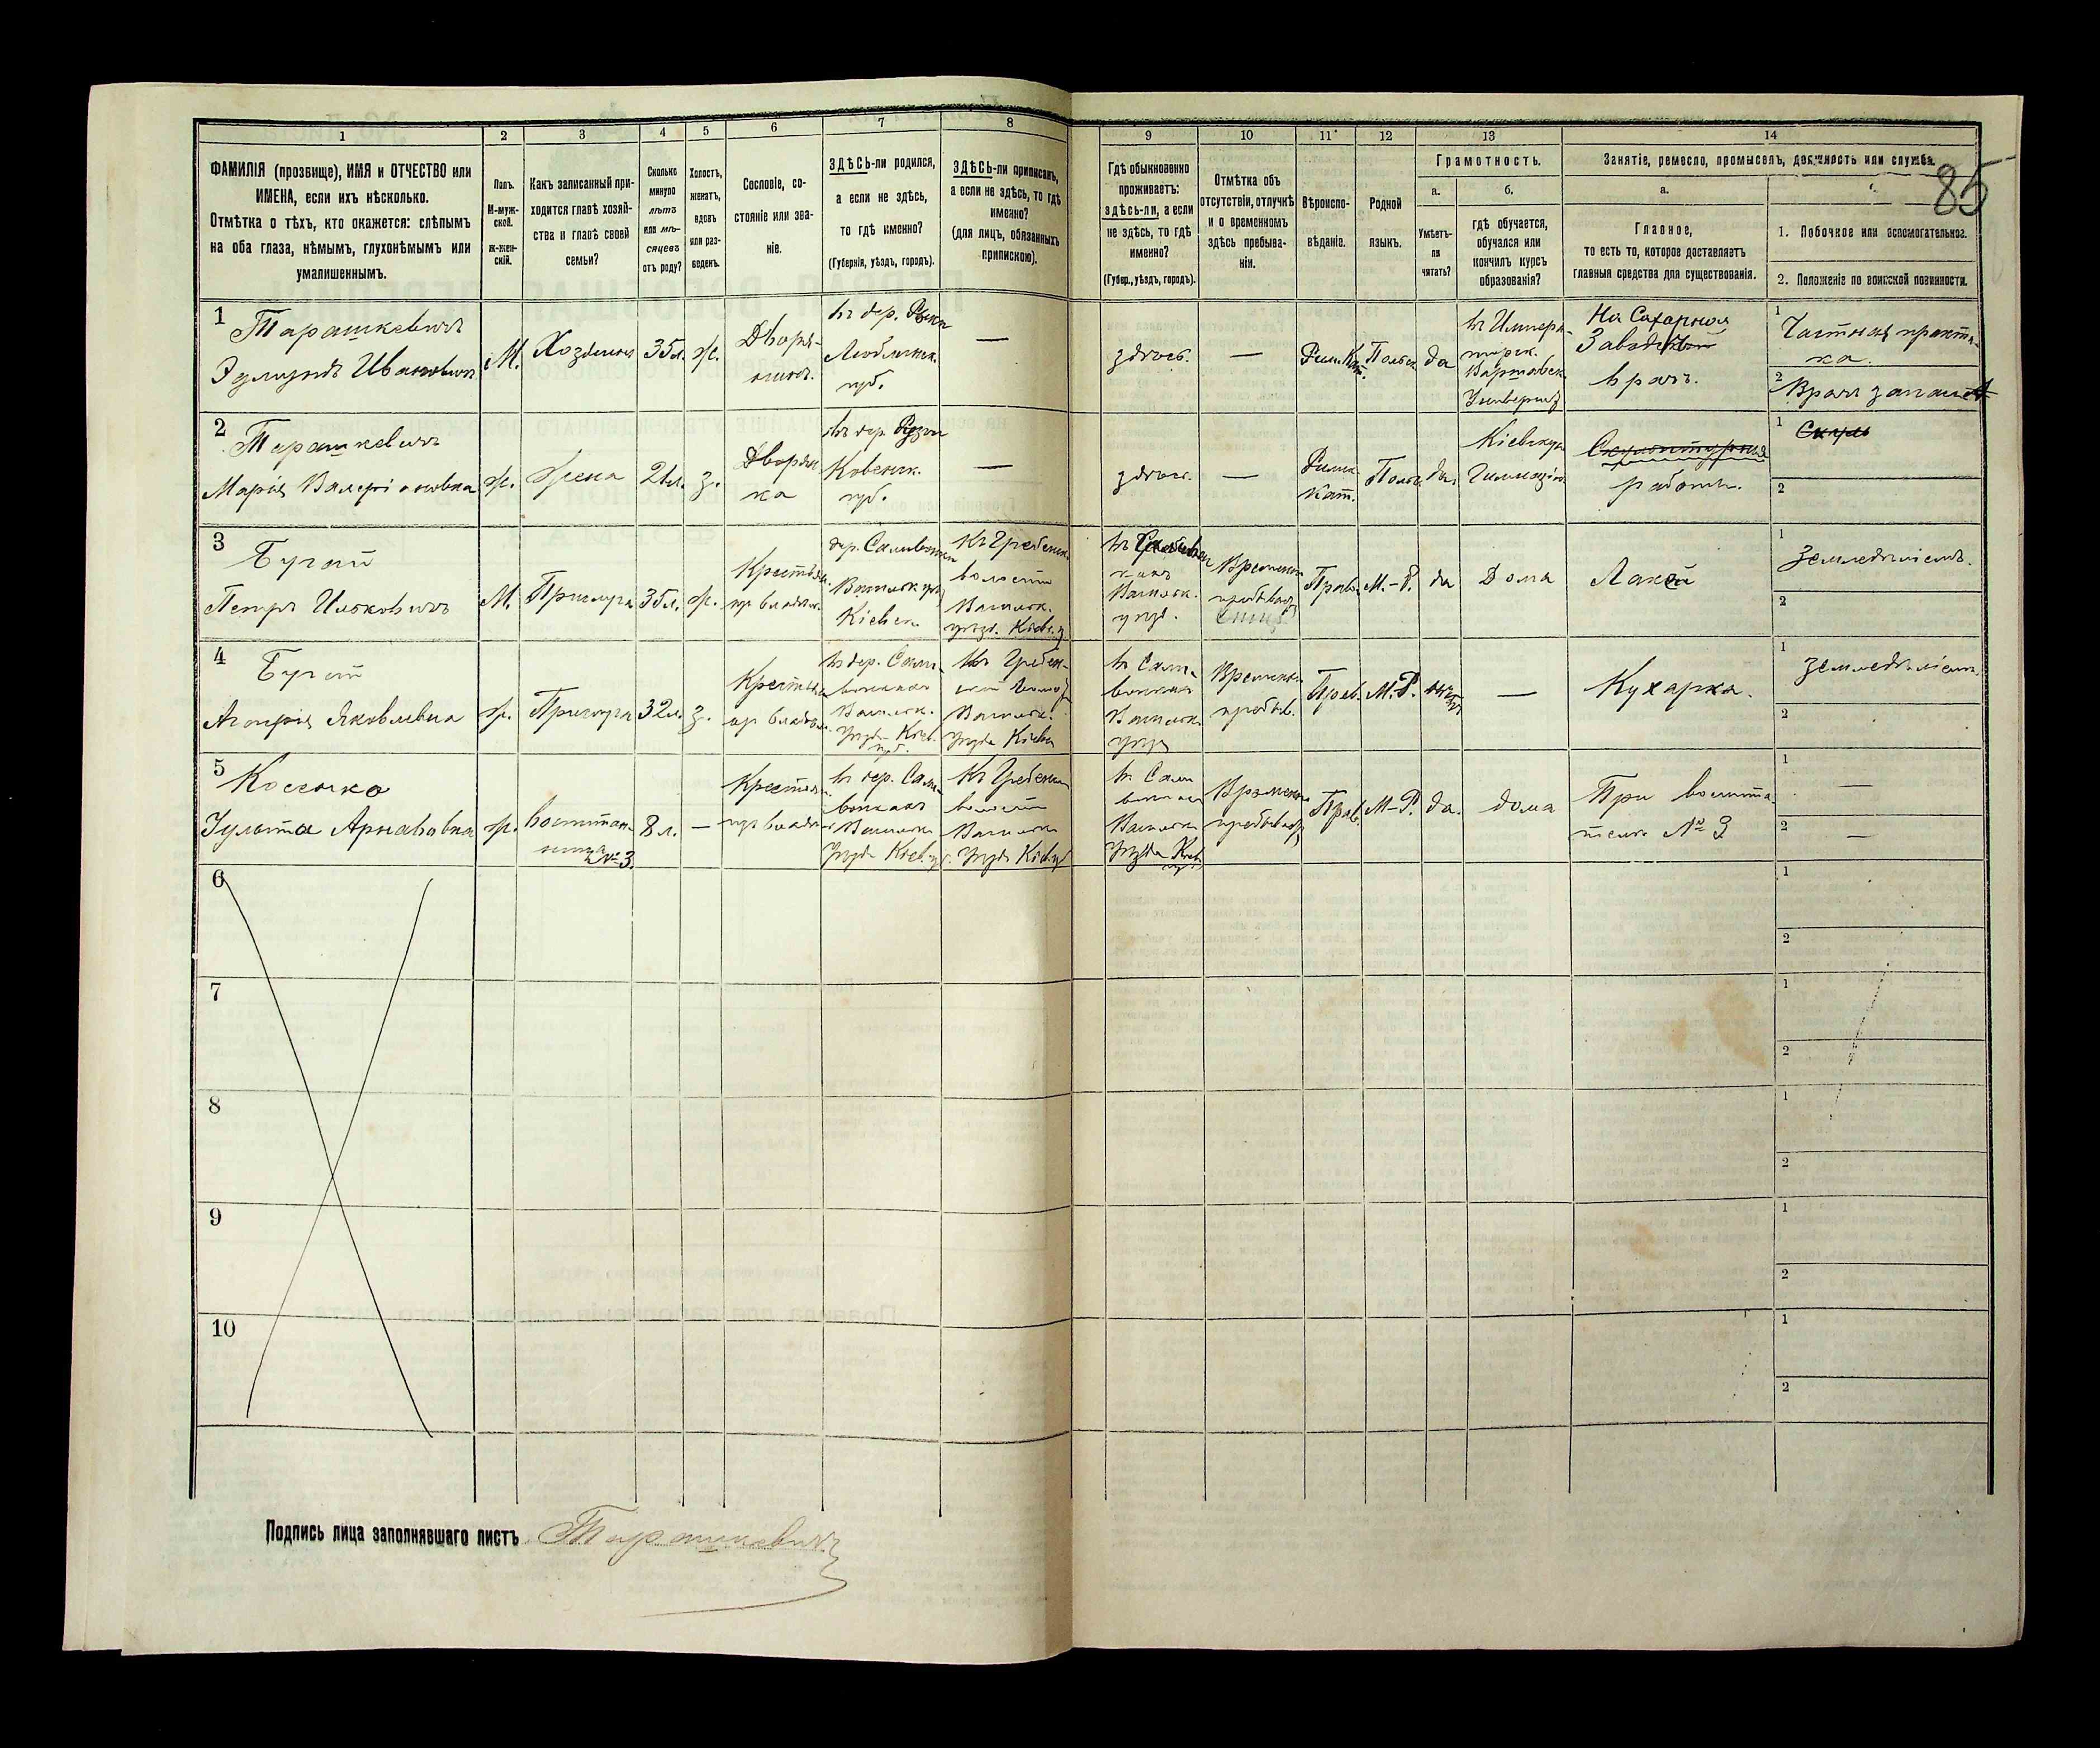 85
1 2 3 4 5 6 7 8 9 10 11 12 13 14
ФАМИЛІЯ (прозвище), ИМЯ и ОТЧЕСТВО или
ИМЕНА, если ихъ нѣсколько.
Отмѣтка о тѣхъ, кто окажется: слѣпымъ
на оба глаза, нѣмымъ, глухонѣмымъ или
умалишеннымъ.
Полъ.
М-муж-
ской.
ж-жен-
скій.
Какъ записанный при-
ходится главѣ хозяй-
ства и главѣ своей
семьи?
Сколько
минуло
лѣтъ
или мѣ-
сяцевъ
отъ роду?
Холостъ,
женатъ,
вдовъ
или раз-
веденъ.
Сословіе, со-
стояніе или зва-
ніе.
ЗДѢСЬ-ли родился,
а если не здѣсь,
то гдѣ именно?
(Губернія, уѣздъ, городъ).
ЗДѢСЬ-ли приписанъ,
а если не здѣсь, то гдѣ
именно?
(для лицъ, обязанныхъ
припискою).
Гдѣ обыкновенно
проживаетъ:
здѣсь-ли, а если
не здѣсь, то гдѣ
именно?
(Губер., уѣздъ, городъ).
Отмѣтка объ
отсутствіи, отлучкѣ
и о временномъ
здѣсь пребыва-
ніи.
Вѣроиспо-
вѣданіе.
Родной
языкъ.
Грамотность.
а.
Умѣетъ-
ли
читать?
б.
гдѣ обучается,
обучался или
кончилъ курсъ
образованія?
Занятіе, ремесло, промыселъ, должность или служба.
а.
Главное,
то есть то, которое доставляетъ
главныя средства для существованія.
1. Побочное или вспомогательное.
2. Положеніе по воинской повинности.
1
Тарашкевичъ
Эдмундъ Ивановичъ
М.
Хозяинъ
35 л.
ж.
Дворя-
нинъ.
въ дер.
Люблинск.
губ.
—
здѣсь.
—
Рим. Кат.
Польск
да
въ Импера-
торск.
Варшавск.
Университ
На Сахарном
Заводѣ
врачъ.
1 Частная практи-
ка.
2 Врачъ запаса
2
Тарашкевичъ
Марія Валеріановна
ж.
Жена
21 л.
з.
Дворян
ка
въ дер.
Ковенск.
губ.
—
здѣсь.
—
Римс.
Кат.
Польс
да.
Кіевскую
Гимназію
Скульптурныя
работы.
1
2
3
Бугай
Петръ Ильковичъ
М.
Прислуга
35 л.
ж.
Крестьян.
изъ владѣл.
дер. Саливонки
Васильк. уѣз
Кіевск
Къ Гребенк.
волости
Васильк.
уѣзд. Кіевс. г
въ
Васильк.
уѣзд.
Временно
пребывает
Прав.
М.-Р.
да
Дома
Лакей
1 Земледѣліемъ.
2
4
Бугай
Агафія Яковлевна
ж.
Прислуга
32 л.
з.
Крестьян
изъ владѣл.
въ дер. Сали-
вонках
Васильк.
Уѣзда Кіев.
губ.
Къ Гребен-
Васильк.
Уѣзда Кіевск
въ Сали-
вонках
Васильк
уѣзд
Временно
пребыв.
Прав.
М.-Р.
нѣтъ
—
Кухарка.
1 Земледѣліемъ.
2
5
Улита
ж.
воспитан-
ница № 3.
8 л.
—
Крестьян.
изъ владѣл
въ дер. Сали-
вонках
Васильк
Уѣзда Кіев. г
Къ Гребенк
волости
Васильк
Уѣзда Кіев.
въ Сали
вонках
Васильк
Уѣзда Кіев
губ
Временно
пребывает
Прав.
М-Р.
да.
дома
При воспита-
телѣ № 3
1 —
2 —
6
1
2
7
1
2
8
1
2
9
1
2
10
1
2
Подпись лица заполнявшаго листъ Тарашкевичъ